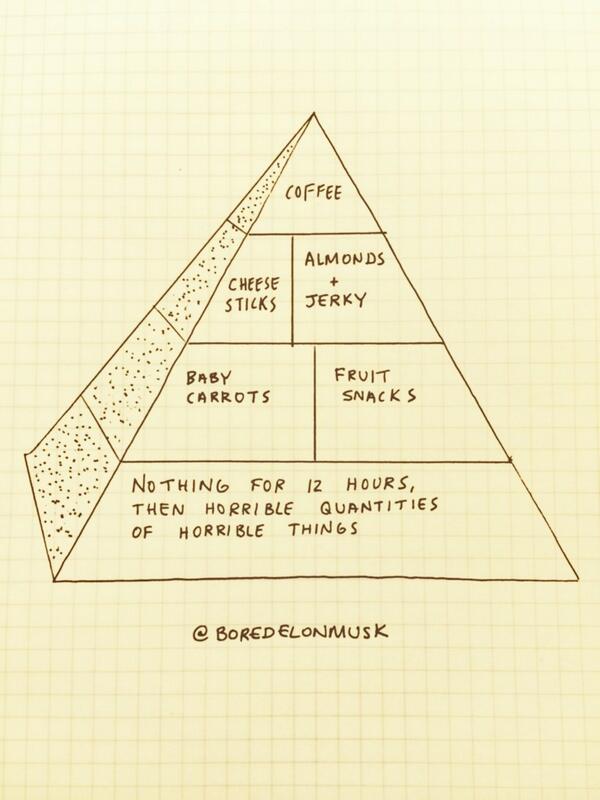 COFFEE
CHEESE
STICKS
ALMONDS
+
JERKY
BABY
CARROTS
FRUIT
SNACKS
NOTHING FOR 12 HOURS,
THEN HORRIBLE QUANTITIES
OF HORRIBLE THINGS
@BOREDELONMUSK